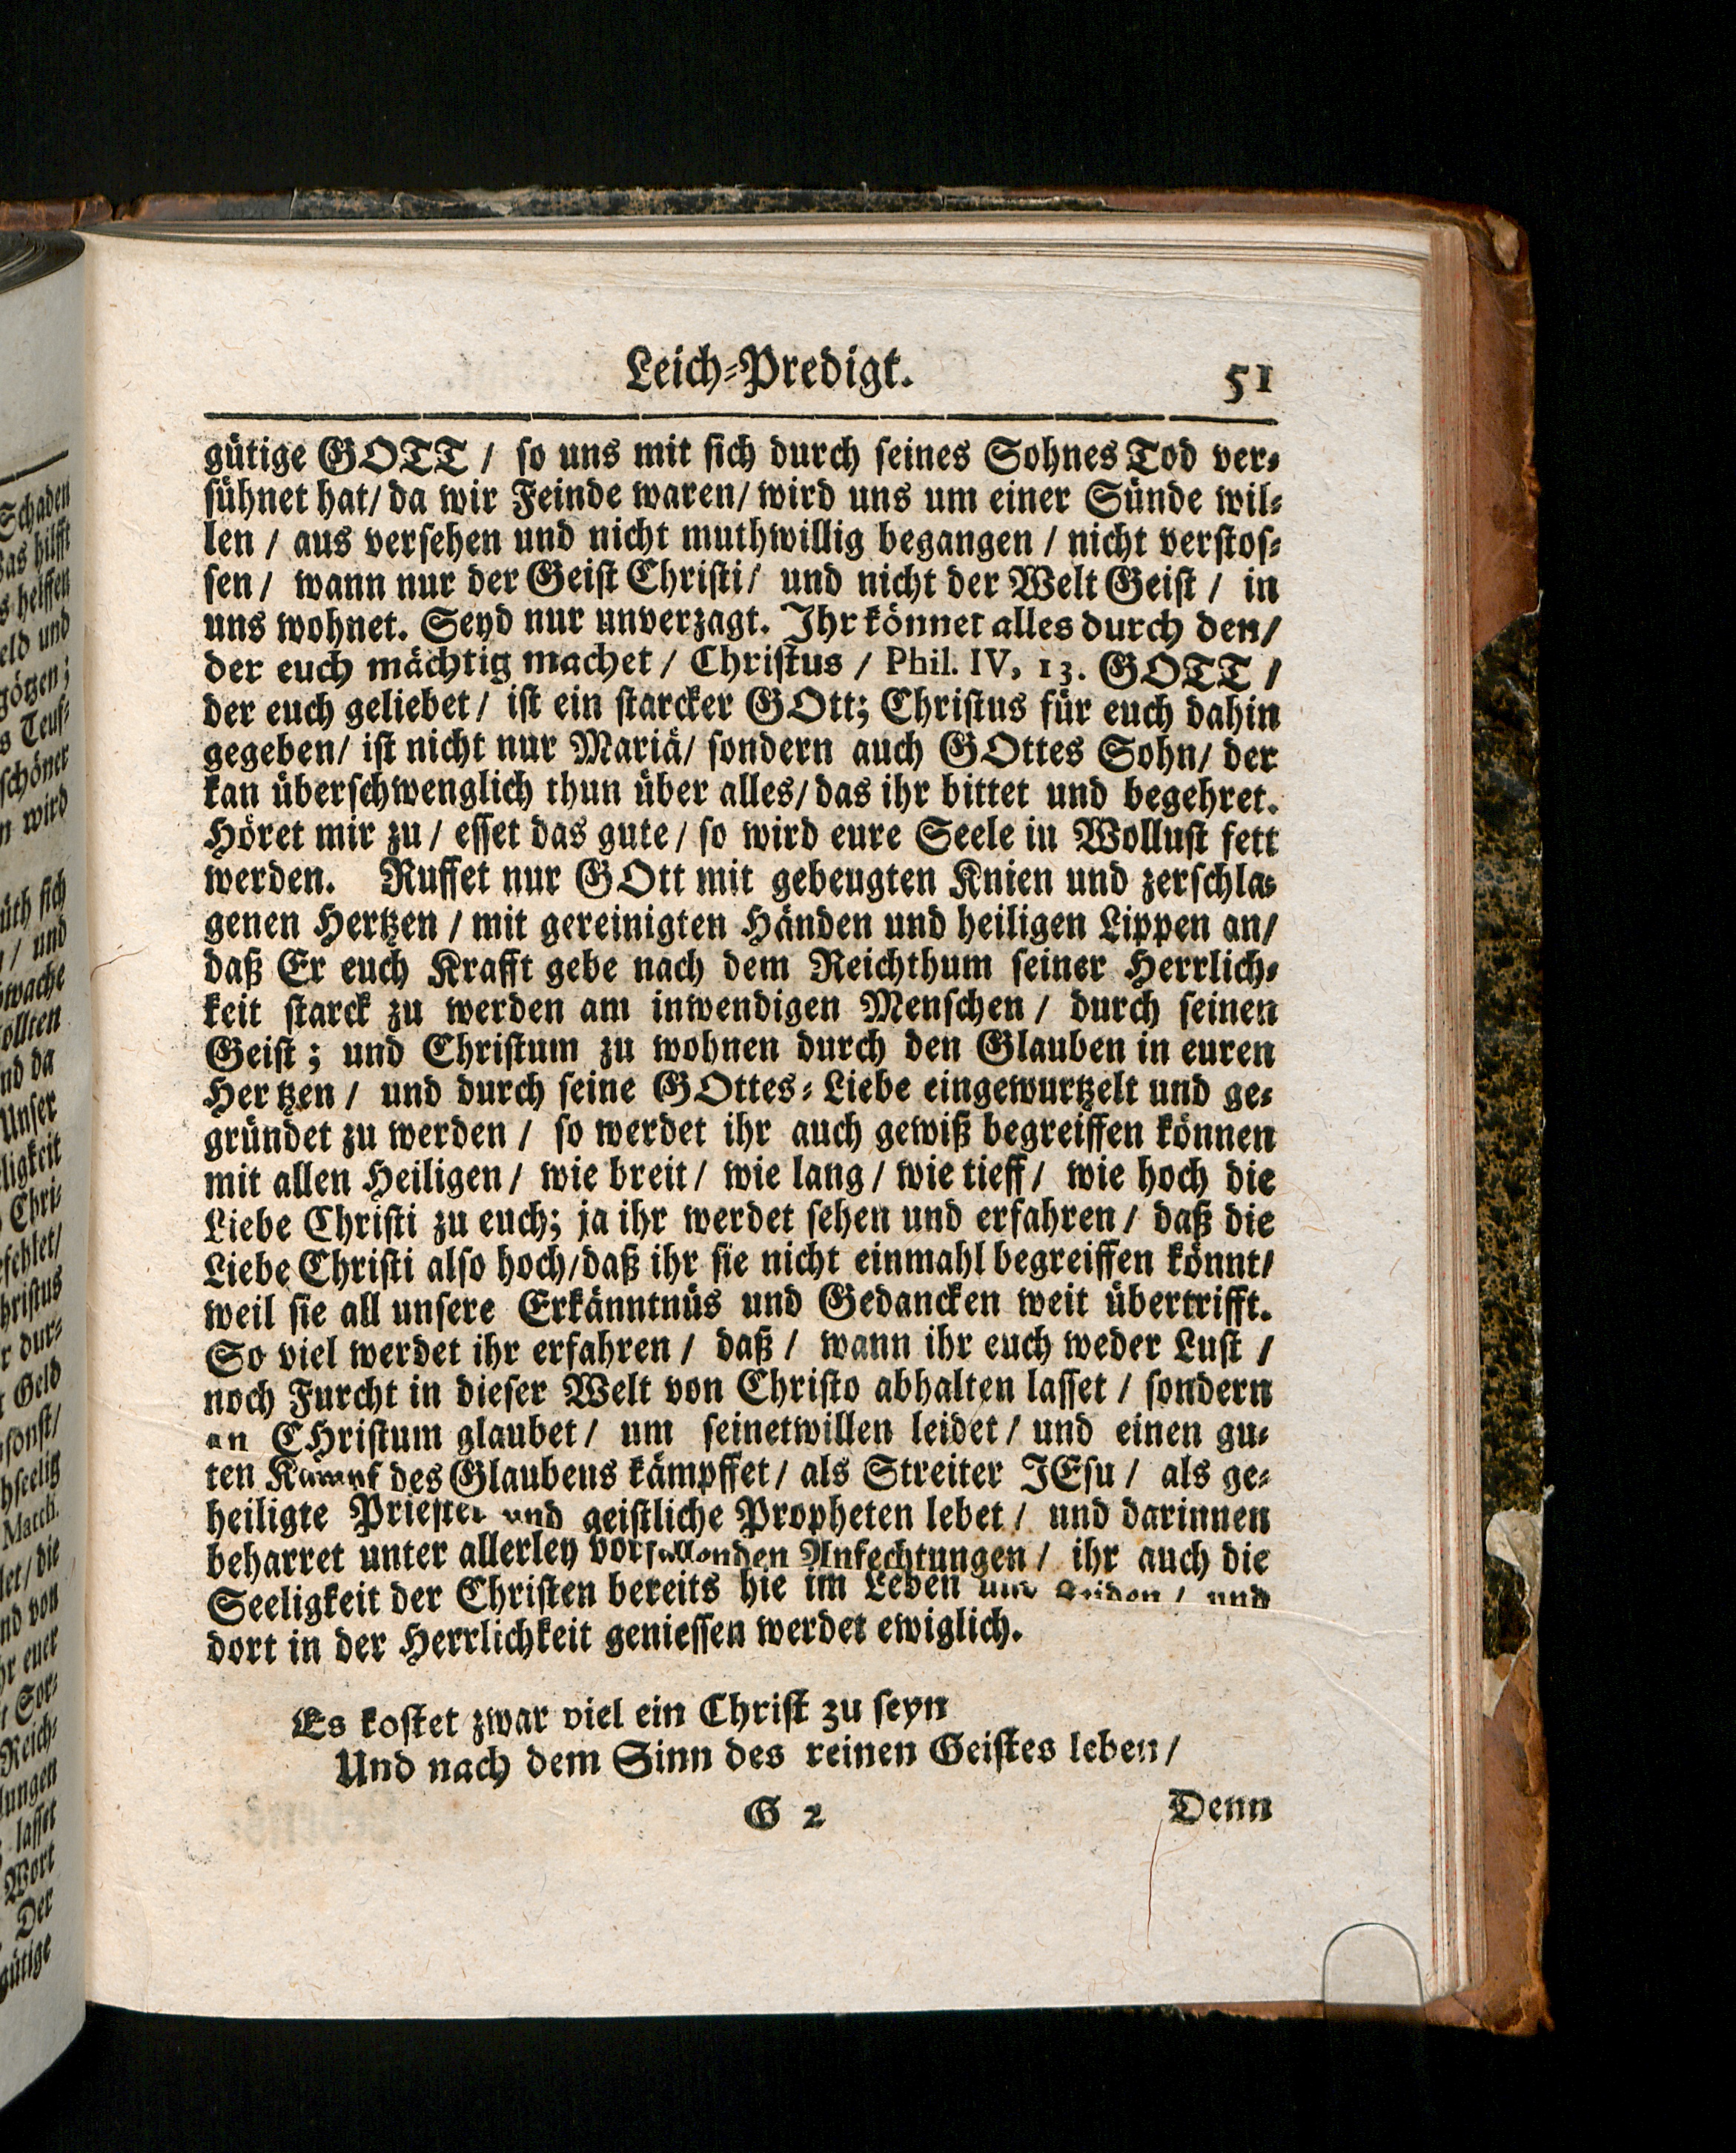 Leich-Predigt. 51
gütige GOTT / so uns mit sich durch seines Sohnes Tod ver-
sühnet hat/ da wir Feinde waren/ wird uns um einer Sünde wil-
len / aus versehen und nicht muthwillig begangen / nicht verstos-
sen / wann nur der Geist Christi/ und nicht der Welt Geist / in
uns wohnet. Seyd nur unverzagt. Ihr könnet alles durch den/
der euch mächtig machet / Christus / Phil. IV, 13. GOTT /
der euch geliebet / ist ein starcker GOtt; Christus für euch dahin
gegeben/ ist nicht nur Mariä/ sondern auch GOttes Sohn/ der
kan überschwenglich thun über alles/ das ihr bittet und begehret.
Höret mir zu / esset das gute / so wird eure Seele in Wollust fett
werden. Ruffet nur GOtt mit gebeugten Knien und zerschla-
genen Hertzen / mit gereinigten Händen und heiligen Lippen an/
daß Er euch Krafft gebe nach dem Reichthum seiner Herrlich-
keit starck zu werden am inwendigen Menschen / durch seinen
Geist; und Christum zu wohnen durch den Glauben in euren
Hertzen / und durch seine GOttes-Liebe eingewurtzelt und ge-
gründet zu werden / so werdet ihr auch gewiß begreiffen können
mit allen Heiligen / wie breit / wie lang / wie tieff / wie hoch die
Liebe Christi zu euch; ja ihr werdet sehen und erfahren / daß die
Liebe Christi also hoch/daß ihr sie nicht einmahl begreiffen könnt/
weil sie all unsere Erkänntnüs und Gedancken weit übertrifft.
So viel werdet ihr erfahren / daß / wann ihr euch weder Lust /
noch Furcht in dieser Welt von Christo abhalten lasset / sondern
an CHristum glaubet / um seinetwillen leidet / und einen gu-
ten Kampf des Glaubens kämpffet / als Streiter JEsu / als ge-
heiligte Priester und geistliche Propheten lebet / und darinnen
beharret unter allerley vorfallenden Anfechtungen / ihr auch die
Seeligkeit der Christen bereits hie im Leben und Leiden / und
dort in der Herrlichkeit geniessen werdet ewiglich.
Es kostet zwar viel ein Christ zu seyn
Und nach dem Sinn des reinen Geistes leben /
G 2 Denn